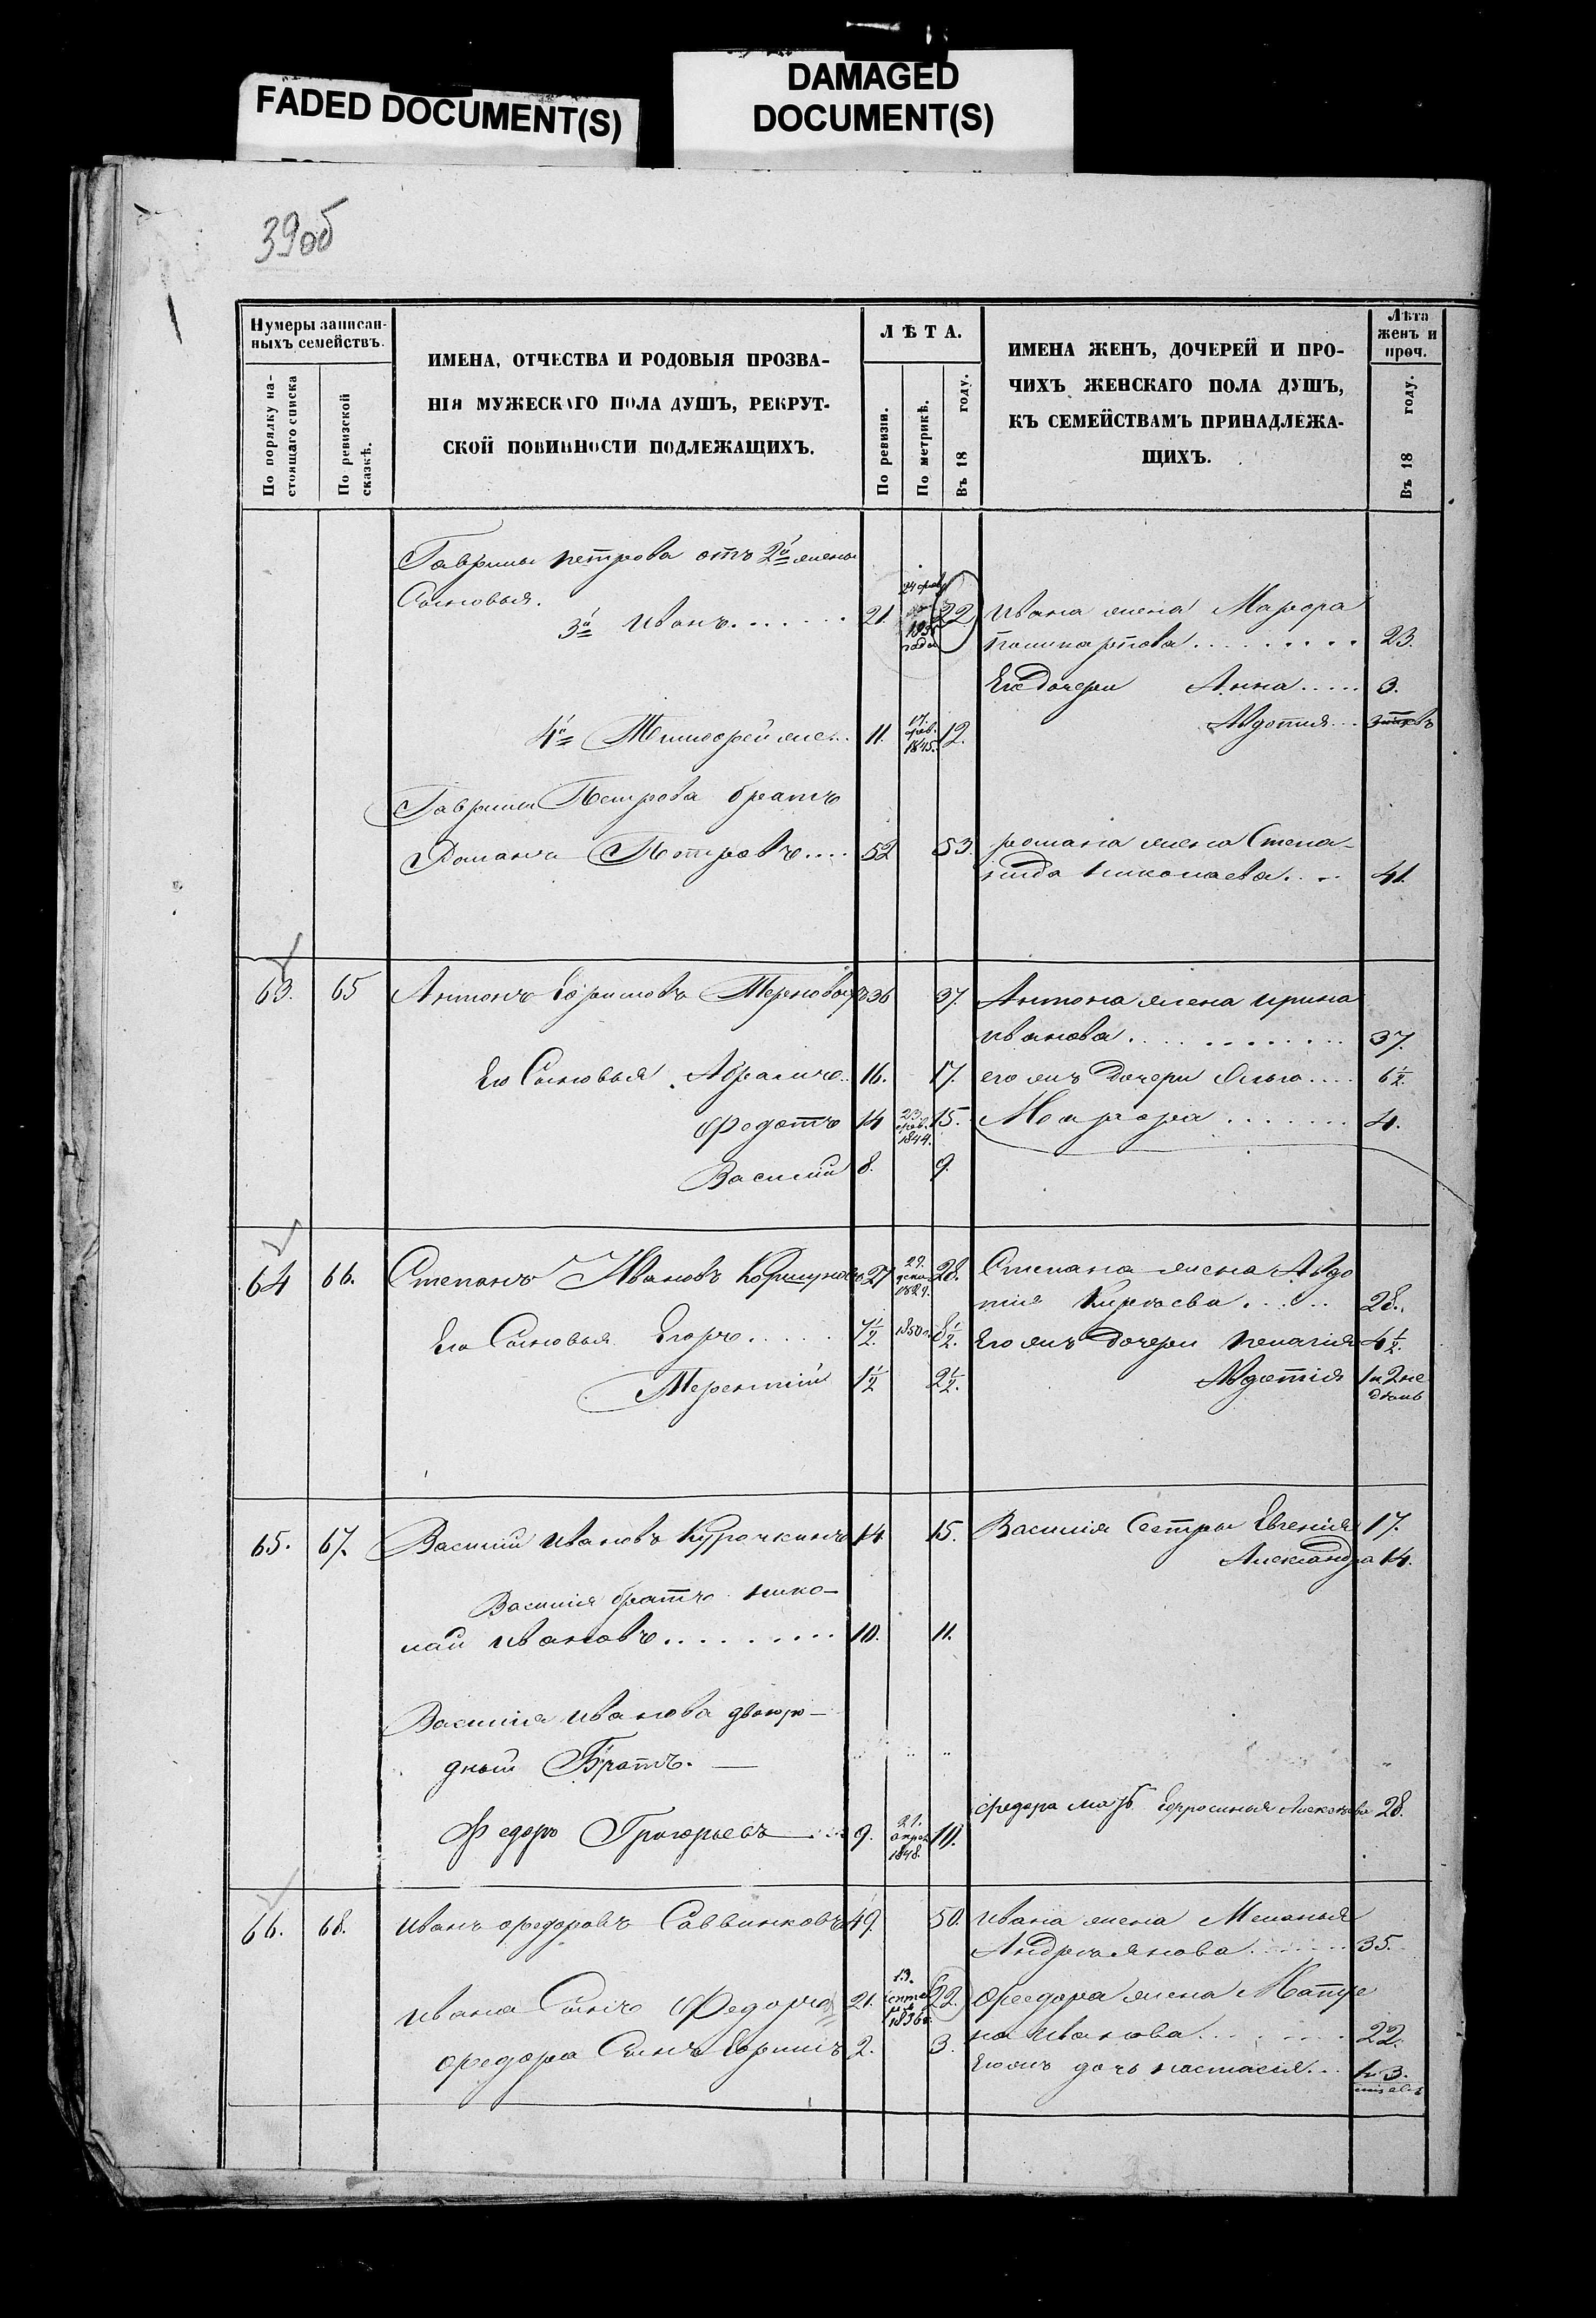 FADED DOCUMENT(S)
DAMAGED
DOCUMENT(S)
39об
Нумеры записан-
ныхъ семействъ.
По порядку на-
стоящаго списка
По ревизской
сказкѣ.
ИМЕНА, ОТЧЕСТВА И РОДОВЫЯ ПРОЗВА-
НІЯ МУЖЕСКАГО ПОЛА ДУШЪ, РЕКРУТ-
СКОЙ ПОВИННОСТИ ПОДЛЕЖАЩИХЪ.
ЛѢТА.
По ревизіи.
По метрикѣ.
Въ 18 году.
ИМЕНА ЖЕНЪ, ДОЧЕРЕЙ И ПРО-
ЧИХЪ ЖЕНСКАГО ПОЛА ДУШЪ,
КЪ СЕМЕЙСТВАМЪ ПРИНАДЛЕЖА-
ЩИХЪ.
Лѣта
женъ и
проч.
Въ 18 году.
Гаврилы петрова отъ 2й жены
Сыновья.
3й Иванъ....... 21. 24 22 Ивана жена Марфа
года
Поликарпова......... 23.
Его Дочери Анна..... 3.
Авдотия...
4й Тимофей 11. 17. фев. 1845. 12.
Гаврилы Петрова братъ
Романъ Петровъ.... 52 53. романа жена Степа-
нида николаева... 41.
63. 65 Антонъ Ефимовъ Терновыхъ 36 37. Антона жена ирина
иванова............. 37.
Его Сыновья Абрамъ.. 16. 17. его жъ Дочери Ольга.... 6½
Федотъ 14 23. фев. 1844. 15. Марфа....... 4.
Василий 8. 9.
64 66. Степанъ Ивановъ Коршуновъ 27 29. 28. Степана жена Авдо
тия..... 28.
Его Сыновья Егоръ..... 7½. 1850 8½. Его жъ дочери пелагия 4½.
Терентий 1½ 2½. Авдотия 1 и 2 не
дель
65. 67. Василий Ивановъ Курочкинъ 14 15. Василия Сестры Евгения 17.
Александра 14.
Василия братъ нико-
лай ивановъ......... 10. 11.
Василия Иванова двоюро-
дный Братъ.
федора мать Ефросинья 28.
Федоръ Григорьевъ 9. 21. апрел 1848. 10.
66. 68. иванъ федоровъ Саввинковъ 49. 50. ивана жена Меланья
Андреянова....... 35.
Ивана Сынъ Федоръ 21. 13. сентя 1836 22. Феодора жена Матре
на Иванова........ 22.
федора Сынъ Ефимъ 2. 3. Его жъ дочь настасия... 3.